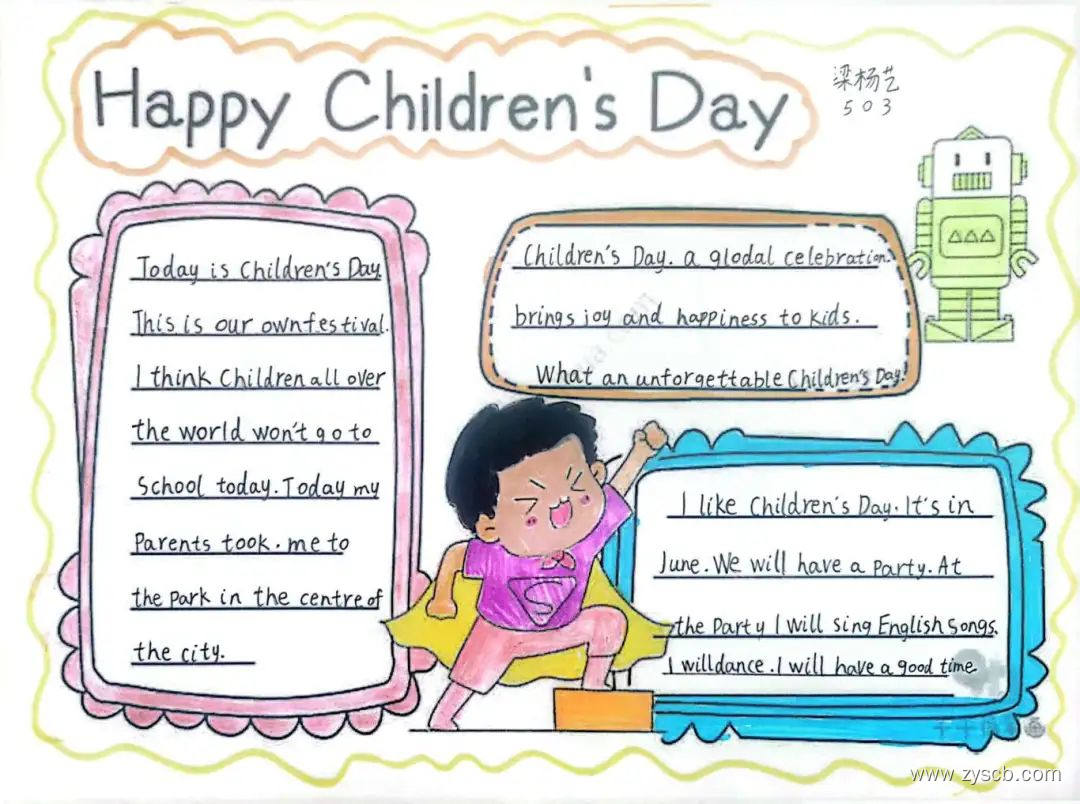 Happy Children's Day
梁杨艺
503
Today is Children's Day.
This is our own festival.
I think Children all over
the world won't go to
School today. Today my
Parents took. me to
the park in the centre of
the city.
Children's Day. a glodal celebration.
brings joy and happiness to kids.
What an unforgettable Children's Day!
I like Children's Day. It's in
June. We will have a party. At
the Party I will sing English songs.
I will dance. I will have a good time
www.zyscb.com